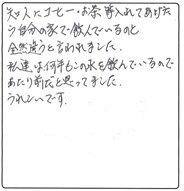 知人にコーヒー・お茶等入れてあげたら
自分の家で飲んでいるのと
全然違うと言われました。
私達は何年もこの水を飲んでいるので
あたり前だと思ってました。
うれしいです。